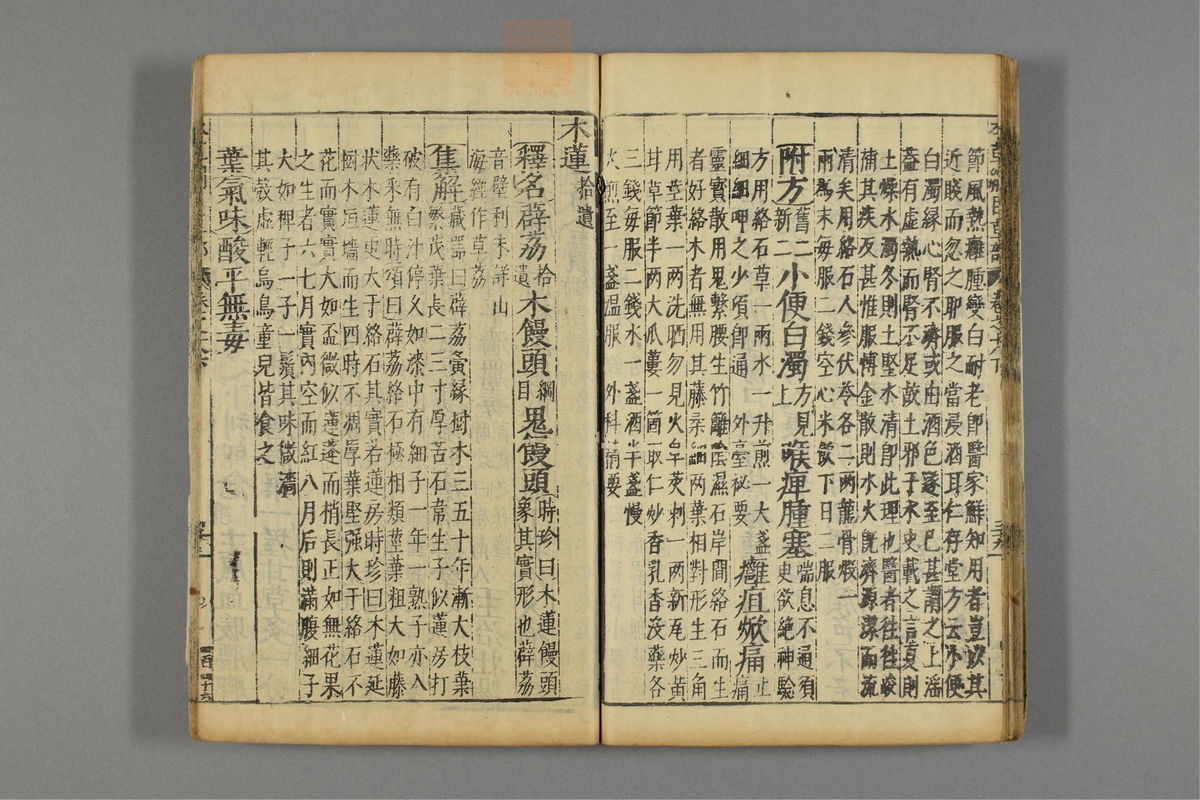 節風熱癰腫變白耐老即醫家鮮知用者豈以其
近賤而忽之耶服之當浸酒耳仁存堂方云小便
白濁緣心腎不濟或由酒色遂至已甚謂之上淫
蓋有虛熱而腎不足故土邪干水史載之言夏則
土燥水濁冬則土堅水清即此理也醫者往往峻
補其疾反甚惟服博金散則水火既濟源潔而流
清矣用絡石人參伏苓各二兩龍骨煅一
兩為末每服二錢空心米飲下日二服
附方舊二新二小便白濁方見上喉痺腫塞喘息不通須臾欲絕神驗
方用絡石草一兩水一升煎一大盞
細細呷之少頃即通 外臺祕要 癰疽焮痛止痛
靈寶散用鬼繫腰生竹籬陰濕石岸間絡石而生
者好絡木者無用其藤柔細兩葉相對形生三角
用莖葉一兩洗晒勿見火皁莢刺一兩新瓦炒黃
甘草節半兩大瓜蔞一箇取仁炒香乳香没藥各
三錢每服二錢水一盞酒半盞慢
火煎至一盞温服 外科精要
木蓮拾遺
釋名薜荔拾遺木饅頭綱目鬼饅頭時珍曰木蓮饅頭象其實形也薜荔
音壁利未詳山
海經作草荔
集解藏器曰薜荔夤緣樹木三五十年漸大枝葉繁茂葉長二三寸厚若石韋生子似蓮房打
破有白汁停久如漆中有細子一年一熟子亦入
藥采無時頌曰薜荔絡石極相類莖葉粗大如藤
狀木蓮更大于絡石其實若蓮房時珍曰木蓮延
樹木垣墻而生四時不凋厚葉堅强大于絡石不
花而實實大如盃微似蓮蓬而梢長正如無花果
之生者六七月實內空而紅八月后則滿腹細子
大如稗子一子一鬚其味微濇
其殼虛輕烏鳥童兒皆食之
葉氣味酸平無毒